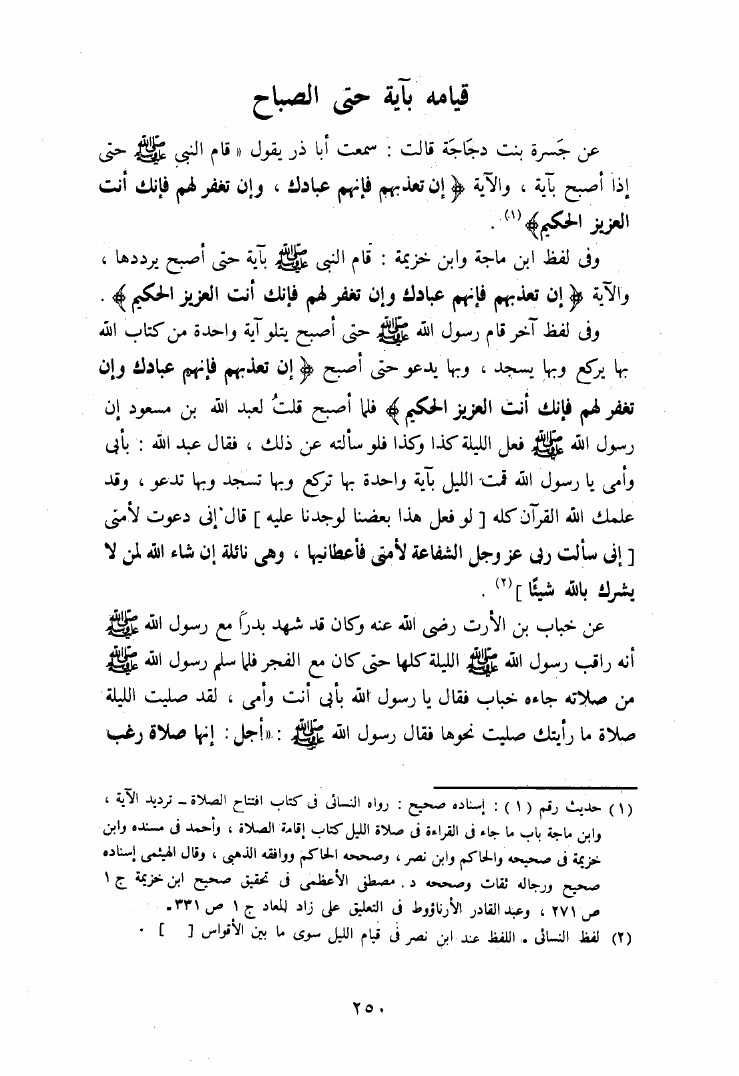 قيامه بآية حتى الصباح
عن جَسرة بنت دجَاجَة قالت : سمعت أبا ذر يقول « قام النبي ﷺ حتى
إذا أصبح بآية ، والآية ﴿ إن تعذبهم فإنهم عبادك ، وإن تغفر لهم فإنك أنت
العزيز الحكيم﴾(١) .
وفى لفظ ابن ماجة وابن خزيمة : قام النبى ﷺ بآية حتى أصبح يرددها ،
والآية ﴿ إن تعذبهم فإنهم عبادك وإن تغفر لهم فإنك أنت العزيز الحكيم ﴾ .
وفى لفظ آخر قام رسول الله ﷺ حتى أصبح يتلو آية واحدة من كتاب الله
بها يركع وبها يسجد ، وبها يدعو حتى أصبح ﴿ إن تعذبهم فإنهم عبادك وإن
تغفر لهم فإنك أنت العزيز الحكيم ﴾ فلما أصبح قلتُ لعبد الله بن مسعود إن
رسول الله ﷺ فعل الليلة كذا وكذا فلو سألته عن ذلك ، فقال عبد الله : بأبى
وأمى يا رسول الله قمت الليل بآية واحدة بها تركع وبها تسجد وبها تدعو ، وقد
علمك الله القرآن كله [ لو فعل هذا بعضنا لوجدنا عليه ] قال إنى دعوت لأمتى
[ إنى سألت ربى عز وجل الشفاعة لأمتى فأعطانيها ، وهى نائلة إن شاء الله لمن لا
يشرك بالله شيئًا ](٢) .
عن خباب بن الأرت رضى الله عنه وكان قد شهد بدراً مع رسول الله ﷺ
أنه راقب رسول الله ﷺ الليلة كلها حتى كان مع الفجر فلما سلم رسول الله ﷺ
من صلاته جاءه خباب فقال يا رسول الله بأبى أنت وأمى ، لقد صليت الليلة
صلاة ما رأيتك صليت نحوها فقال رسول الله ﷺ : «أجل : إنها صلاة رغب
(١) حديث رقم (١) : إسناده صحيح : رواه النسائى فى كتاب افتتاح الصلاة ـ ترديد الآية ،
وابن ماجة باب ما جاء فى القراءة فى صلاة الليل كتاب إقامة الصلاة ، وأحمد فى مسنده وابن
خزيمة فى صحيحه والحاكم وابن نصر ، وصححه الحاكم ووافقه الذهبى ، وقال الهيثمى إسناده
صحيح ورجاله ثقات وصححه د. مصطفى الأعظمى فى تحقيق صحيح ابن خزيمة ج ١
ص ٢٧١ ، وعبد القادر الأرناؤوط فى التعليق على زاد المعاد ج ١ ص ٣٣١ .
(٢) لفظ النسائى . اللفظ عند ابن نصر فى قيام الليل سوى ما بين الأقواس [ ] .
٢٥٠